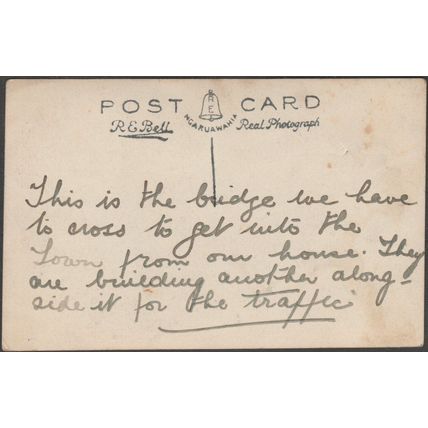 POST CARD
R E
NGARUAWAHIA
R.E.Bell Real Photograph
This is the bridge we have
to cross to get into the
Town from our house. They
are building another along-
side it for the traffic